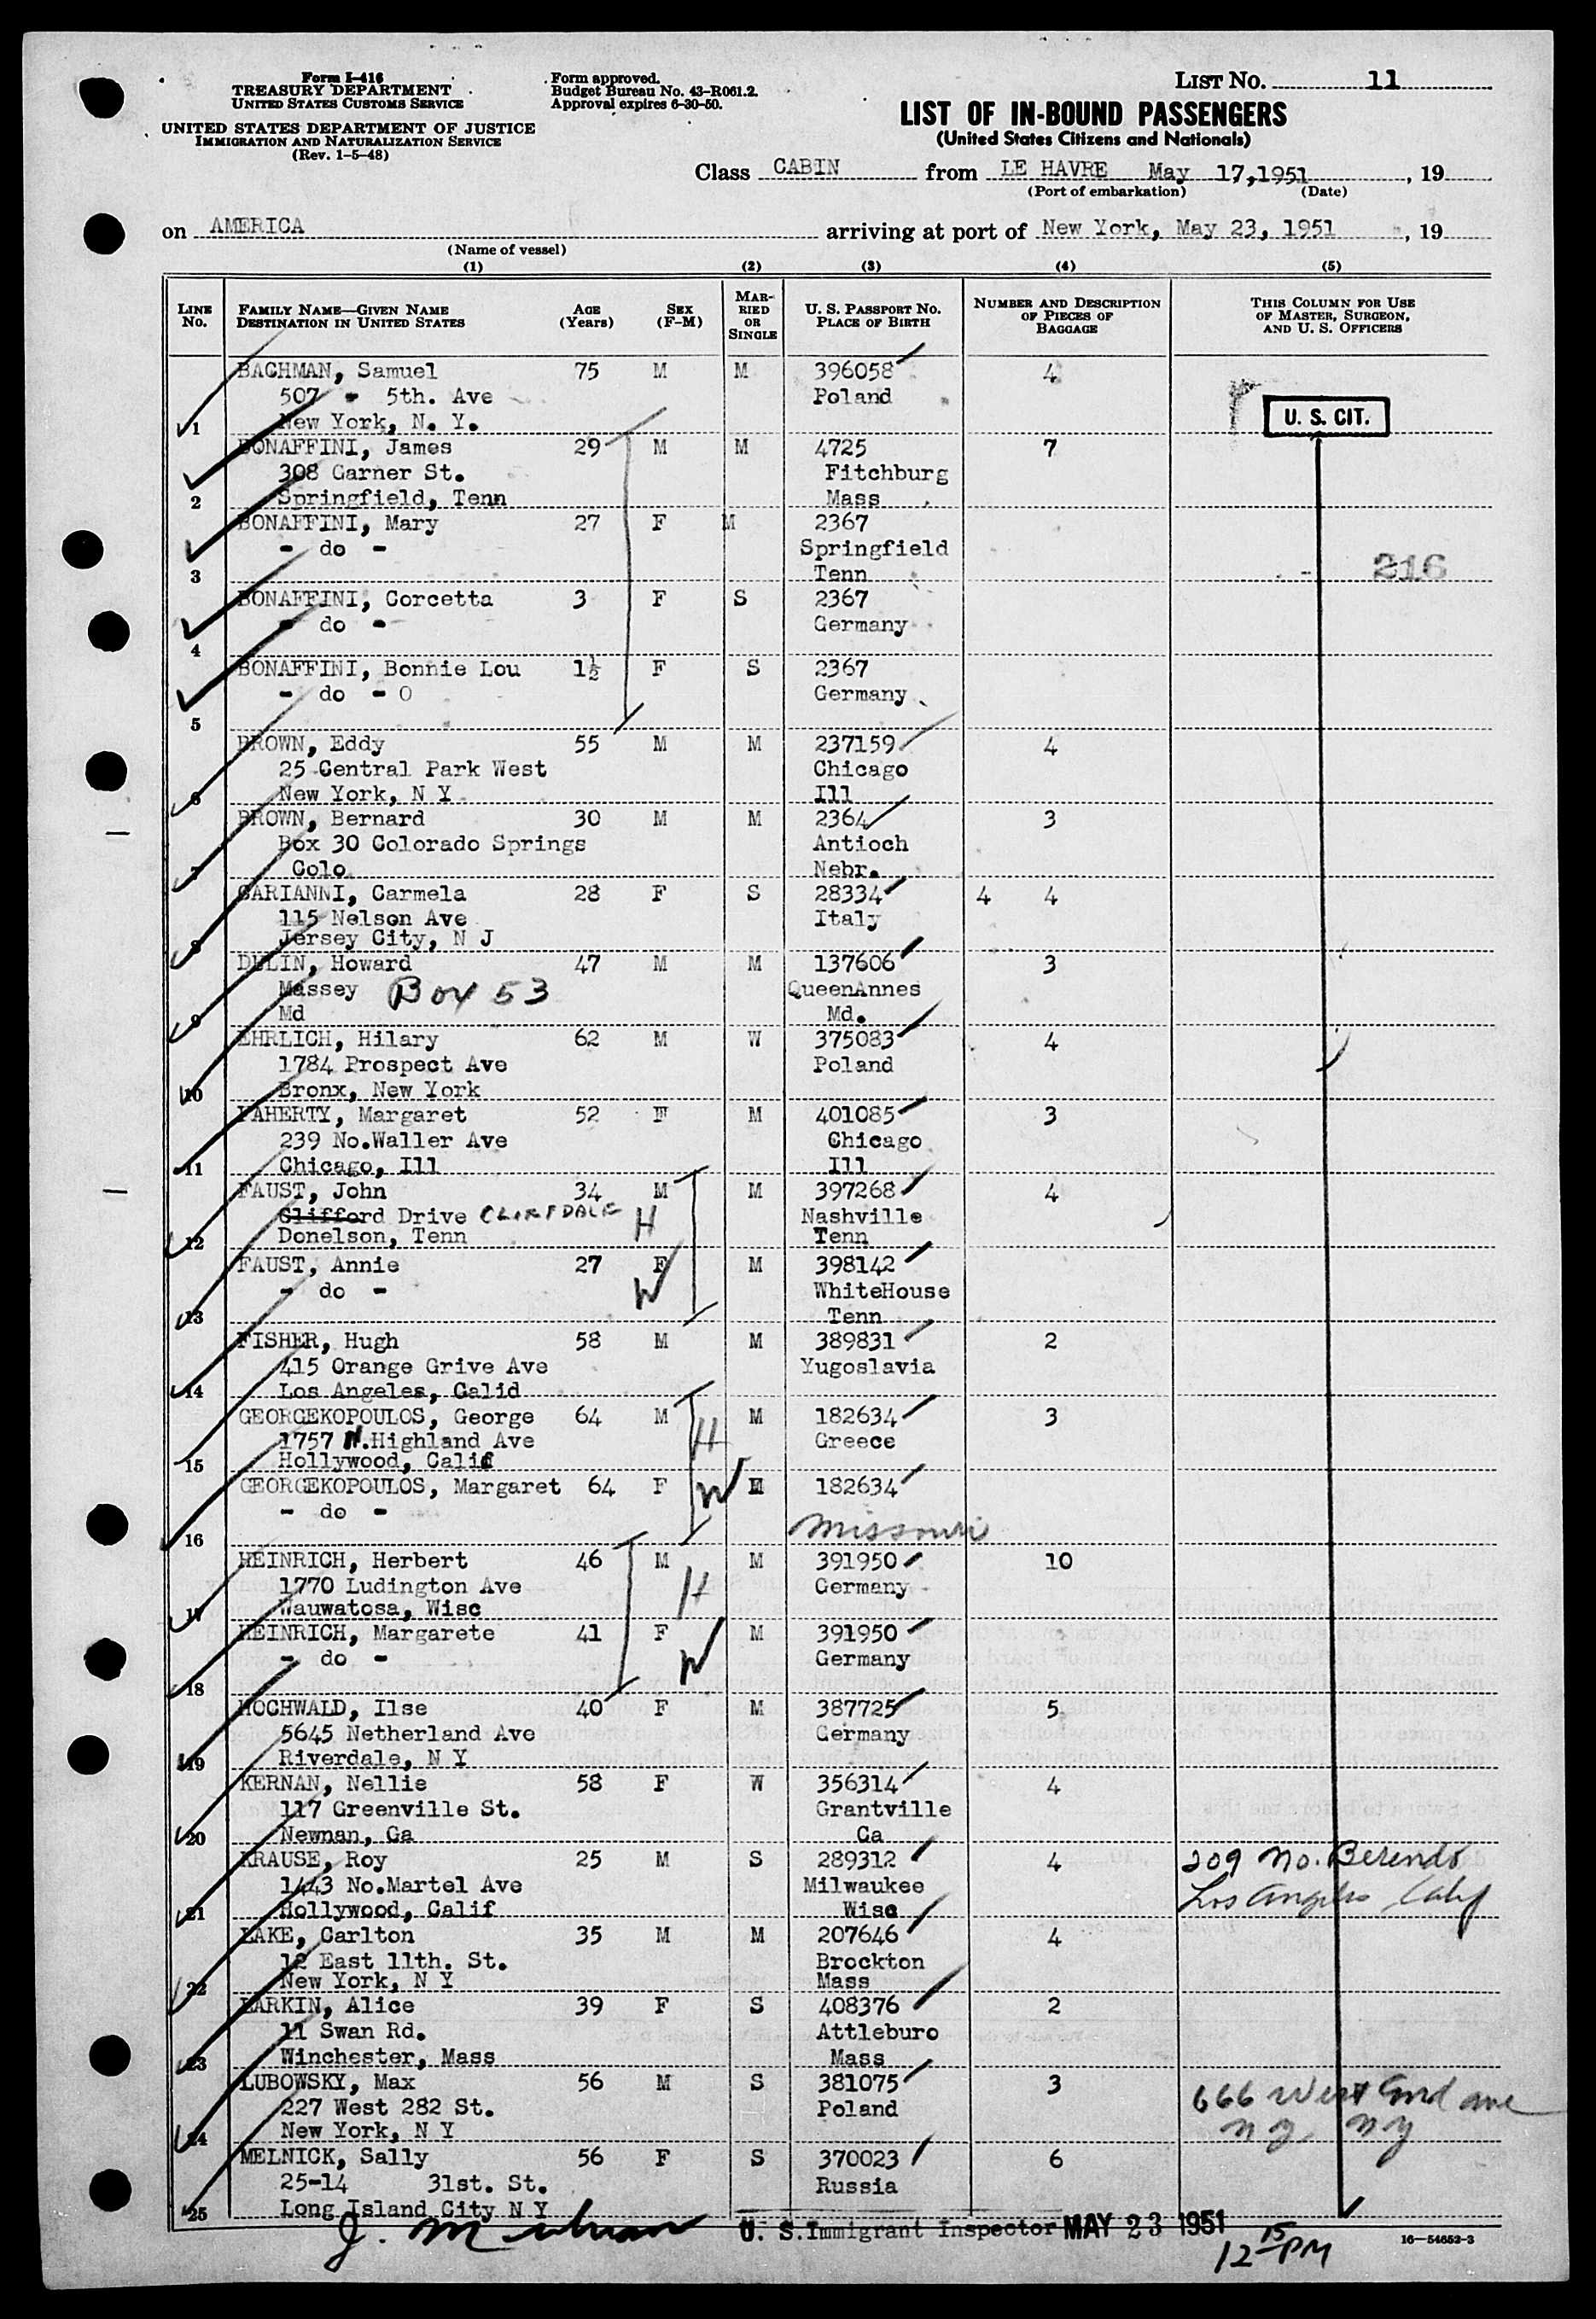 Form I-416
TREASURY DEPARTMENT
UNITED STATES CUSTOMS SERVICE
UNITED STATES DEPARTMENT OF JUSTICE
IMMIGRATION AND NATURALIZATION SERVICE
(Rev. 1-5-48)
Form approved.
Budget Bureau No. 43-R061.2.
Approval expires 6-30-50.
LIST No. 11
LIST OF IN-BOUND PASSENGERS
(United States Citizens and Nationals)
Class CABIN from LE HAVRE May 17,1951, 19
(Port of embarkation) (Date)
on AMERICA arriving at port of New York, May 23, 1951, 19
(Name of vessel)
(1) (2) (3) (4) (5)
LINE No. FAMILY NAME—GIVEN NAME DESTINATION IN UNITED STATES AGE (Years) SEX (F-M) MARRIED OR SINGLE U. S. PASSPORT No. PLACE OF BIRTH NUMBER AND DESCRIPTION OF PIECES OF BAGGAGE THIS COLUMN FOR USE OF MASTER, SURGEON, AND U. S. OFFICERS
BACHMAN, Samuel 75 M M 396058 4
507 - 5th. Ave Poland
1 New York, N. Y. U. S. CIT.
BONAFFINI, James 29 M M 4725 7
308 Garner St. Fitchburg
2 Springfield, Tenn Mass
BONAFFINI, Mary 27 F M 2367
- do - Springfield
3 Tenn 216
BONAFFINI, Corcetta 3 F S 2367
- do - Germany
4
BONAFFINI, Bonnie Lou 1½ F S 2367
- do - O Germany
5
BROWN, Eddy 55 M M 237159 4
25 Central Park West Chicago
6 New York, N Y Ill
BROWN, Bernard 30 M M 2364 3
Box 30 Colorado Springs Antioch
7 Colo Nebr.
CARIANNI, Carmela 28 F S 28334 4 4
115 Nelson Ave Italy
8 Jersey City, N J
DULIN, Howard 47 M M 137606 3
Massey Box 53 QueenAnnes
9 Md Md.
EHRLICH, Hilary 62 M W 375083 4
1784 Prospect Ave Poland
10 Bronx, New York
FAHERTY, Margaret 52 F M 401085 3
239 No.Waller Ave Chicago
11 Chicago, Ill Ill
FAUST, John 34 M M 397268 4
Clifford Drive CLIFFDALE H Nashville
12 Donelson, Tenn Tenn
FAUST, Annie 27 F M 398142
- do - W WhiteHouse
13 Tenn
FISHER, Hugh 58 M M 389831 2
415 Orange Grive Ave Yugoslavia
14 Los Angeles, Calid
GEORGEKOPOULOS, George 64 M M 182634 3
1757 N.Highland Ave H Greece
15 Hollywood, Calif
GEORGEKOPOULOS, Margaret 64 F W M 182634
- do -
16 Missouri
HEINRICH, Herbert 46 M M 391950 10
1770 Ludington Ave H Germany
17 Wauwatosa, Wisc
HEINRICH, Margarete 41 F M 391950
- do - W Germany
18
HOCHWALD, Ilse 40 F M 387725 5
5645 Netherland Ave Germany
19 Riverdale, N Y
KERNAN, Nellie 58 F W 356314 4
117 Greenville St. Grantville
20 Newnan, Ga Ca
KRAUSE, Roy 25 M S 289312 4 209 No. Berendo
1443 No.Martel Ave Milwaukee Los Angeles Calif
21 Hollywood, Calif Wisc
LAKE, Carlton 35 M M 207646 4
12 East 11th. St. Brockton
22 New York, N Y Mass
LARKIN, Alice 39 F S 408376 2
11 Swan Rd. Attleburo
23 Winchester, Mass Mass
LUBOWSKY, Max 56 M S 381075 3 666 West End ave
227 West 282 St. Poland N Y N Y
24 New York, N Y
MELNICK, Sally 56 F S 370023 6
25-14 31st. St. Russia
25 Long Island City N Y
J. U. S. Immigrant Inspector MAY 23 1951
12 15 PM
16—54652-3